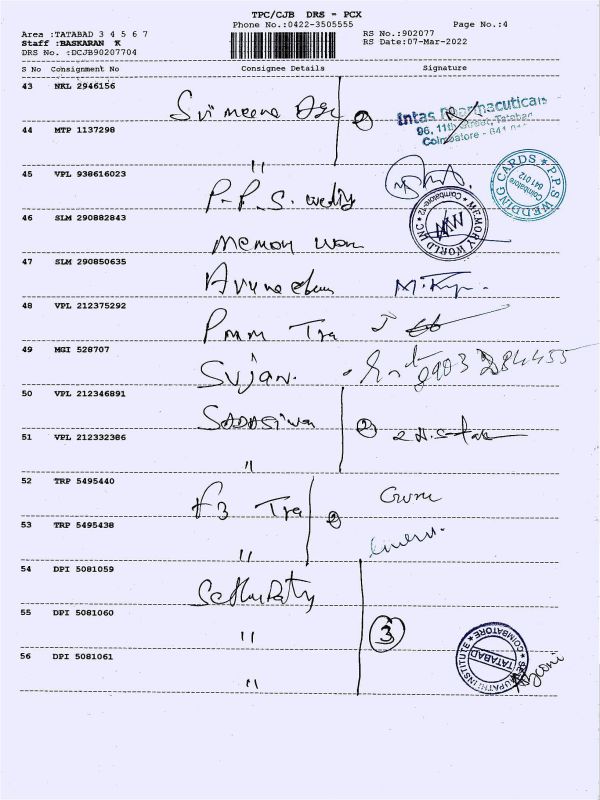 TPC/CJB DRS - PCX
Phone No.:0422-3505555 Page No.:4
Area :TATABAD 3 4 5 6 7 RS No.:902077
Staff :BASKARAN K RS Date:07-Mar-2022
DRS No. :DCJB90207704
S No Consignment No Consignee Details Signature
43 NKL 2946156
Sri meena 2
Intas Pharmaceuticals
96, 11th Street, Tatabad
Coimbatore - 641 012
44 MTP 1137298
"
45 VPL 938616023
P.P.S. wedg
P.P.S WEDDING CARDS
Coimbatore 641 012
46 SLM 290882843
Memory
MEMORY WORLD INC
Coimbatore-12
47 SLM 290850635
Arunachm
48 VPL 212375292
Pmm Tra
49 MGI 528707
Sujan.
8903 284455
50 VPL 212346891
SADASIVam 2
51 VPL 212332386
"
52 TRP 5495440
F3 Tra 2
53 TRP 5495438
"
54 DPI 5081059
Sethupathy
55 DPI 5081060
" 3
56 DPI 5081061
"
INSTITUTE COIMBATORE
TATABAD